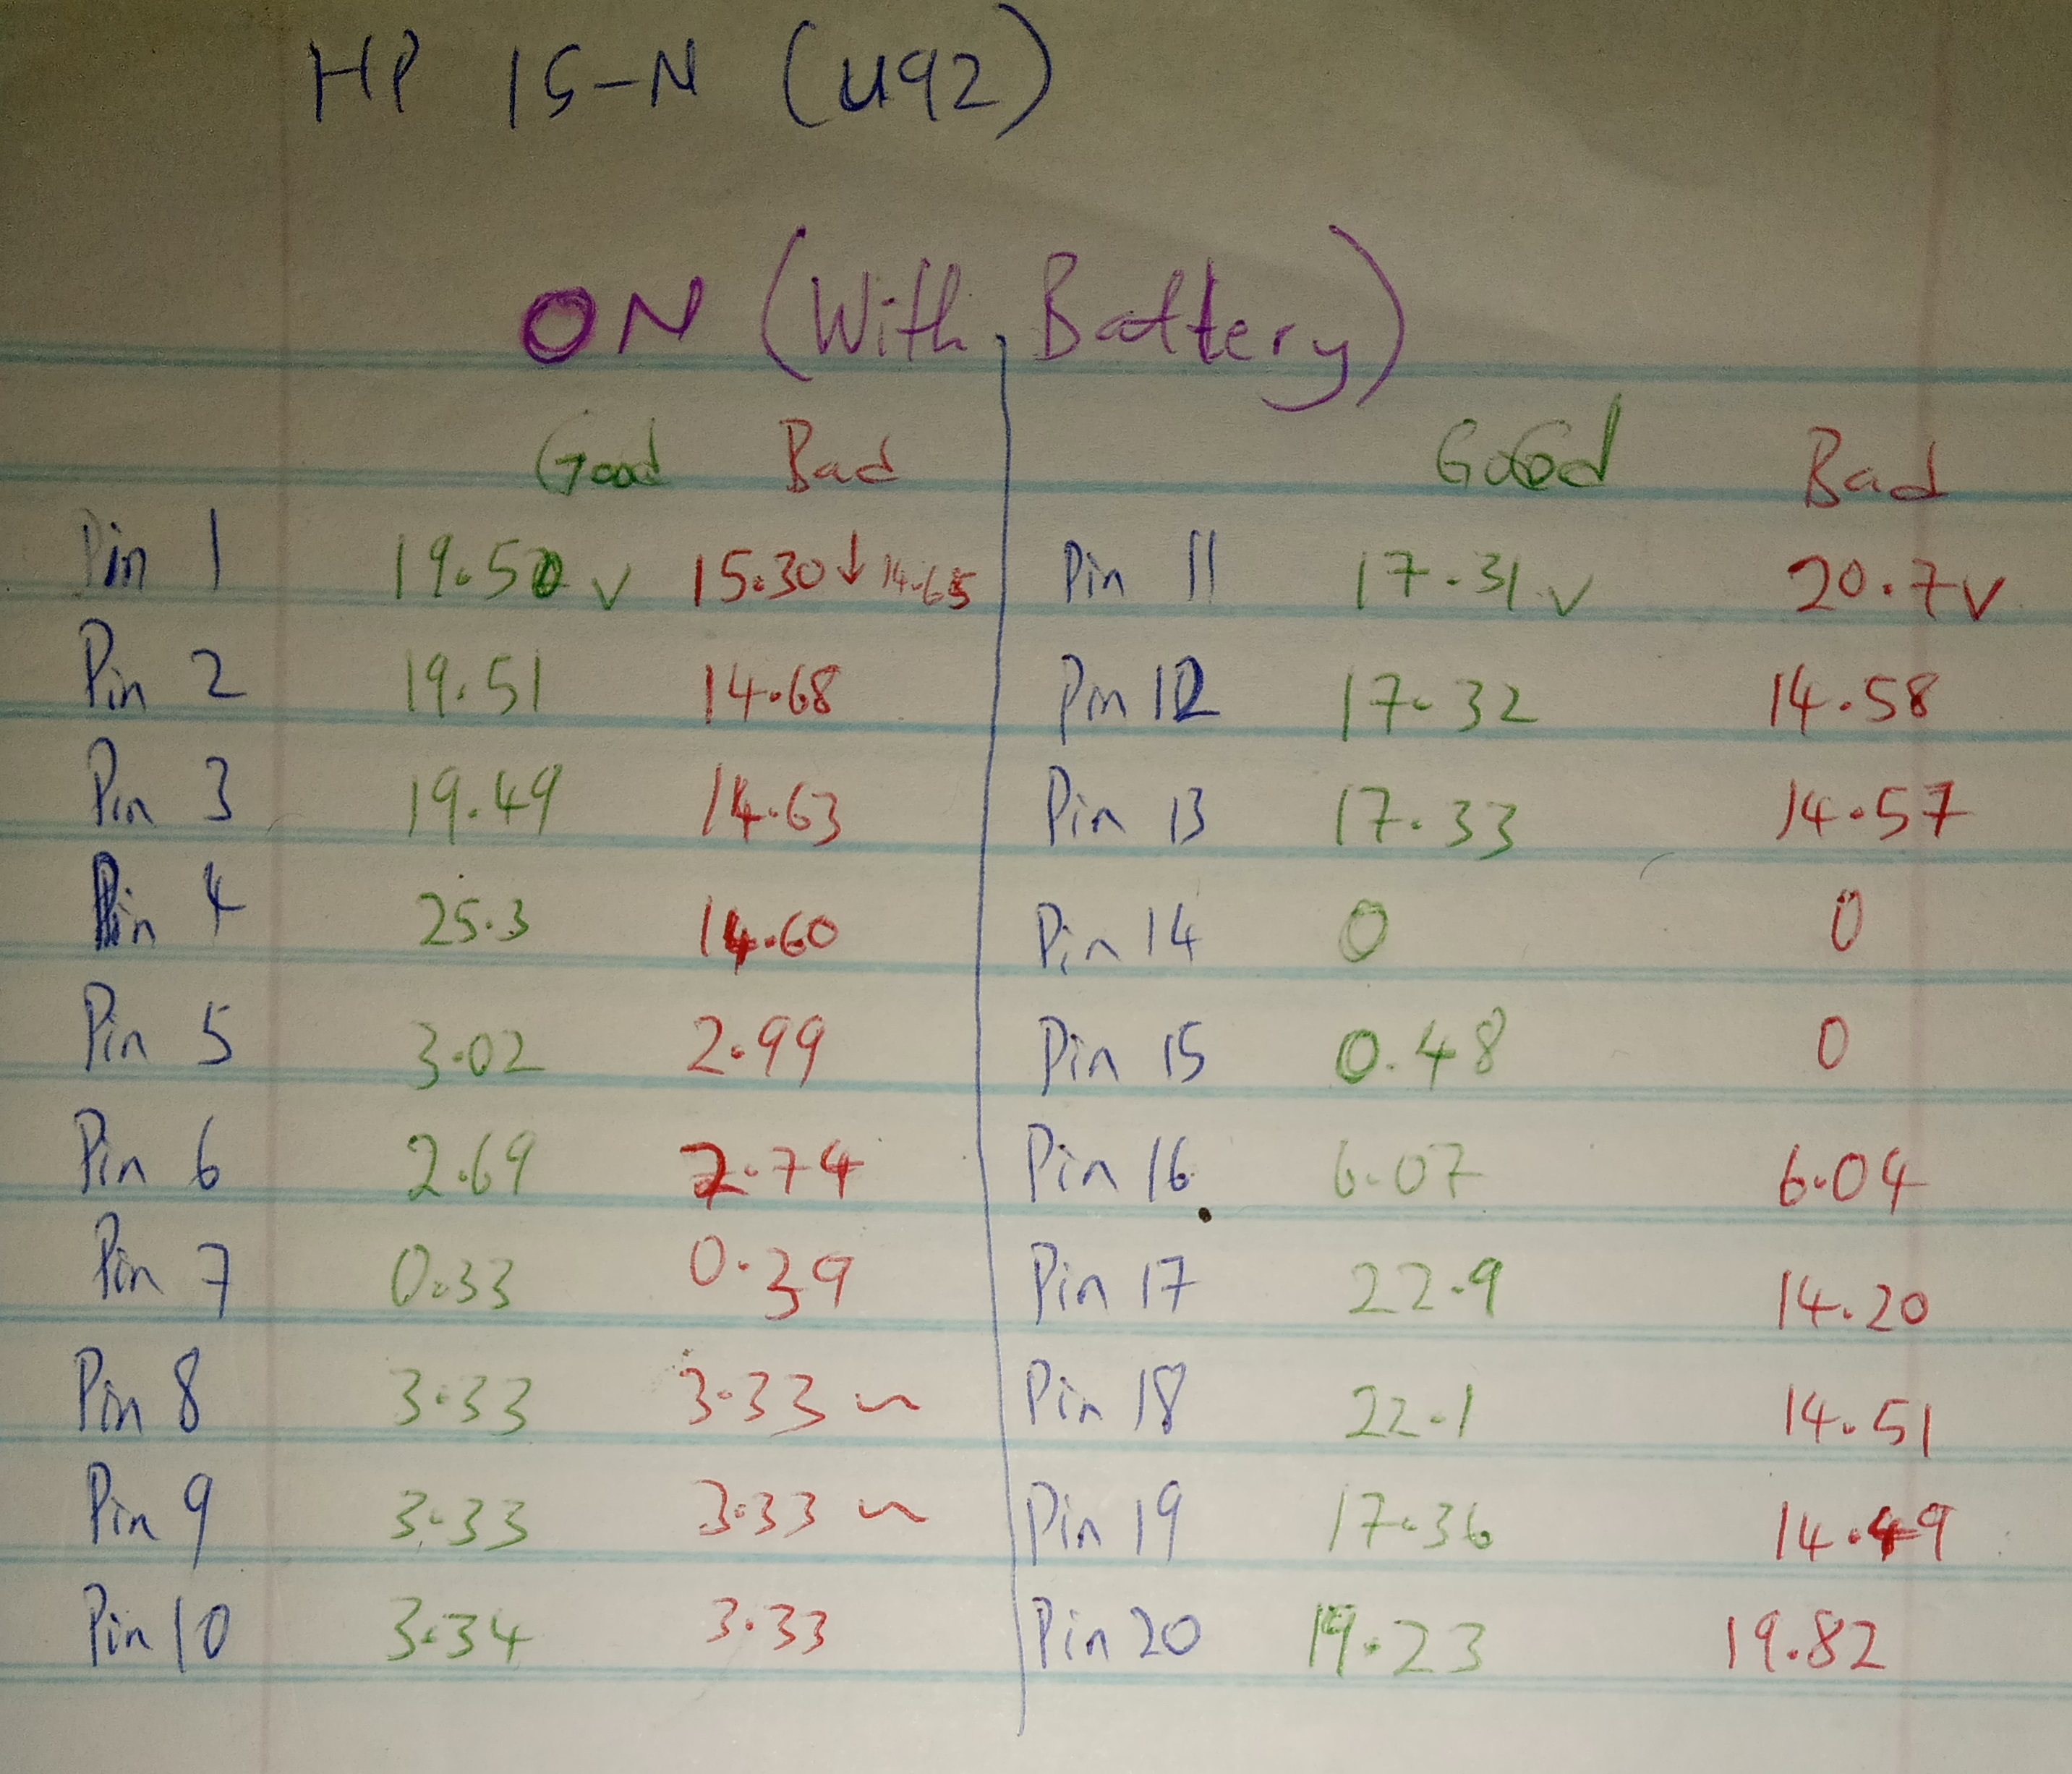 HP 15-N (U92)
ON (With Battery)
Good Bad Good Bad
Pin 1 19.50 v 15.30↓14.65 Pin 11 17.31v 20.7v
Pin 2 19.51 14.68 Pin 12 17.32 14.58
Pin 3 19.49 14.63 Pin 13 17.33 14.57
Pin 4 25.3 14.60 Pin 14 0 0
Pin 5 3.02 2.99 Pin 15 0.48 0
Pin 6 2.69 2.74 Pin 16 6.07 6.04
Pin 7 0.33 0.39 Pin 17 22.9 14.20
Pin 8 3.33 3.33 ~ Pin 18 22.1 14.51
Pin 9 3.33 3.33 ~ Pin 19 17.36 14.49
Pin 10 3.34 3.33 Pin 20 19.23 19.82